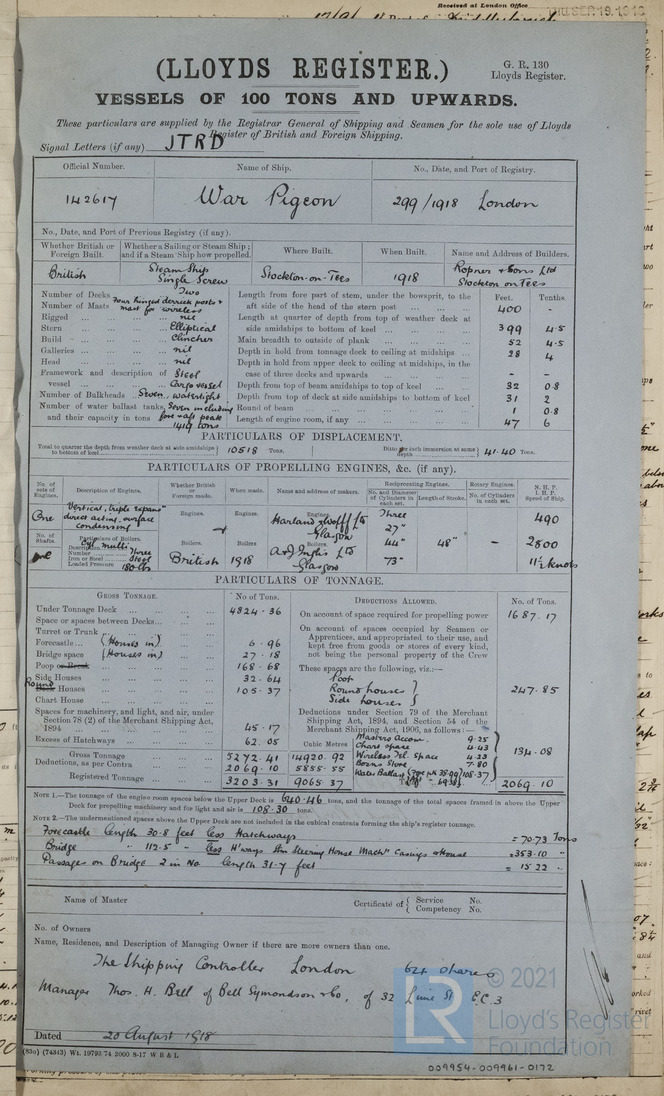 Received at London Office
THU. SEP. 19. 1918
(LLOYDS REGISTER.)
G. R. 130
Lloyds Register.
VESSELS OF 100 TONS AND UPWARDS.
These particulars are supplied by the Registrar General of Shipping and Seamen for the sole use of Lloyds
Register of British and Foreign Shipping.
Signal Letters (if any) JTRD
Official Number. Name of Ship. No., Date, and Port of Registry.
142617 War Pigeon 299/1918 London
No., Date, and Port of Previous Registry (if any).
Whether British or Foreign Built. Whether a Sailing or Steam Ship; and if a Steam Ship how propelled. Where Built. When Built. Name and Address of Builders.
British Steam Ship Single Screw Stockton-on-Tees 1918 Ropner & Sons Ltd Stockton on Tees
Number of Decks Two
Number of Masts Four hinged derrick posts & mast for wireless
Rigged nil
Stern Elliptical
Build Clincher
Galleries nil
Head nil
Framework and description of vessel Steel Cargo vessel
Number of Bulkheads Seven, watertight
Number of water ballast tanks, and their capacity in tons Seven including fore & aft peaks 1419 tons
Feet. Tenths.
Length from fore part of stem, under the bowsprit, to the aft side of the head of the stern post 400 -
Length at quarter of depth from top of weather deck at side amidships to bottom of keel 399 4·5
Main breadth to outside of plank 52 4·5
Depth in hold from tonnage deck to ceiling at midships 28 4
Depth in hold from upper deck to ceiling at midships, in the case of three decks and upwards - -
Depth from top of beam amidships to top of keel 32 0·8
Depth from top of deck at side amidships to bottom of keel 31 2
Round of beam 1 0·8
Length of engine room, if any 47 6
PARTICULARS OF DISPLACEMENT.
Total to quarter the depth from weather deck at side amidships to bottom of keel 10518 Tons. Ditto per inch immersion at same depth 41·40 Tons.
PARTICULARS OF PROPELLING ENGINES, &c. (if any).
No. of sets of Engines. Description of Engines. Whether British or Foreign made. When made. Name and address of makers. Reciprocating Engines. No. and Diameter of Cylinders in each set. Length of Stroke. Rotary Engines. No. of Cylinders in each set. N.H.P. I.H.P. Speed of Ship.
One Vertical, triple expansn direct acting, surface condensing Engines. Engines. Engines. Harland & Wolff Ltd Glasgow Three 27" 490
No. of Shafts. Particulars of Boilers. Boilers. Boilers. Boilers. 44" 48" - 2800
One Description Cyl. multi. Number Three Iron or Steel Steel Loaded Pressure 180 lbs British 1918 A & J Inglis Ltd Glasgow 73" 11½ knots
PARTICULARS OF TONNAGE.
GROSS TONNAGE. No. of Tons. DEDUCTIONS ALLOWED. No. of Tons.
Under Tonnage Deck 4824·36
Space or spaces between Decks
Turret or Trunk
Forecastle (Houses in) 6·96
Bridge space (Houses in) 27·18
Poop or Break 168·68
Side Houses 32·64
Round Deck Houses 105·37
Chart House
Spaces for machinery, and light, and air, under Section 78 (2) of the Merchant Shipping Act, 1894 45·17
Excess of Hatchways 62·05
Cubic Metres
Gross Tonnage 5272·41 14920·92
Deductions, as per Contra 2069·10 5855·55
Registered Tonnage 3203·31 9065·37
On account of space required for propelling power 1687·17
On account of spaces occupied by Seamen or Apprentices, and appropriated to their use, and kept free from goods or stores of every kind, not being the personal property of the Crew
These spaces are the following, viz.:—
Poop
Round houses
Side houses
247·85
Deductions under Section 79 of the Merchant Shipping Act, 1894, and Section 54 of the Merchant Shipping Act, 1906, as follows:—
Masters Accom. 9·25
Chart space 4·43
Wireless Tel. Space 4·23
Bosns Store 7·80
Water Ballast 108·37
134·08
2069·10
NOTE 1.—The tonnage of the engine room spaces below the Upper Deck is 640·46 tons, and the tonnage of the total spaces framed in above the Upper
Deck for propelling machinery and for light and air is 108·30 tons.
NOTE 2.—The undermentioned spaces above the Upper Deck are not included in the cubical contents forming the ship's register tonnage.
Forecastle length 30·8 feet less Hatchways = 70·73 Tons
Bridge " 112·5 - less H'ways Stm Steering House Machy Casings & House = 353·10 "
Passages on Bridge 2 in No length 31·7 feet = 15·22 "
Name of Master Certificate of { Service No. Competency No.
No. of Owners
Name, Residence, and Description of Managing Owner if there are more owners than one.
The Shipping Controller London 64 shares
Manager Thos. H. Bell of Bell Symondson & Co, of 32 Lime St E.C.3
Dated 20 August 1918
(83c) (74343) Wt. 19793/74 2000 8-17 W B & L
© 2021
LR Lloyd's Register
Foundation
009954-009961-0172